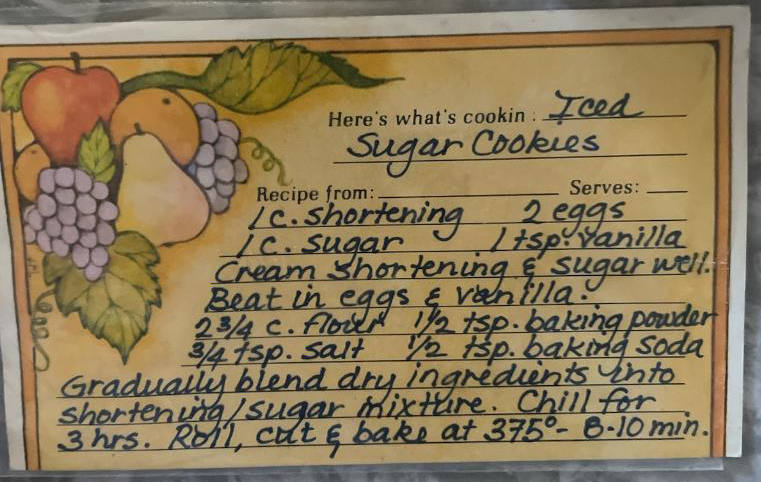 Here's what's cookin: Iced
Sugar Cookies
Recipe from: Serves:
1 c. shortening 2 eggs
1 c. sugar 1 tsp. vanilla
Cream shortening & sugar well.
Beat in eggs & vanilla.
2 3/4 c. flour 1/2 tsp. baking powder
3/4 tsp. salt 1/2 tsp. baking soda
Gradually blend dry ingredients into
shortening/sugar mixture. Chill for
3 hrs. Roll, cut & bake at 375° - 8-10 min.